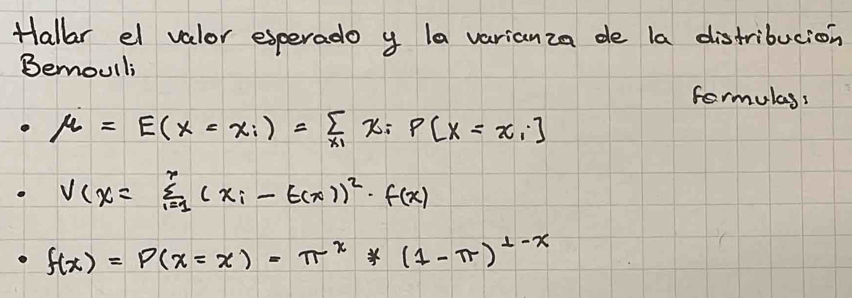 Hallar el valor esperado y la varianza de la distribución
Bernoulli
formulas:
• μ = E(x = xi) = Σ xi P[X = xi]
xi
• V(x = Σ (xi - E(x))². f(x)
i=1
• f(x) = P(x = x) = π^x * (1 - π)^1-x